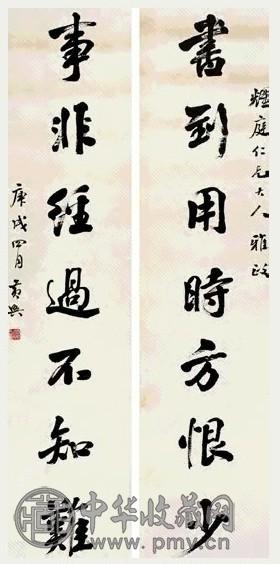 耀庭仁兄大人雅政
書到用時方恨少
事非經過不知難
庚戌四月黃興
中华收藏网
www.pmy.cn